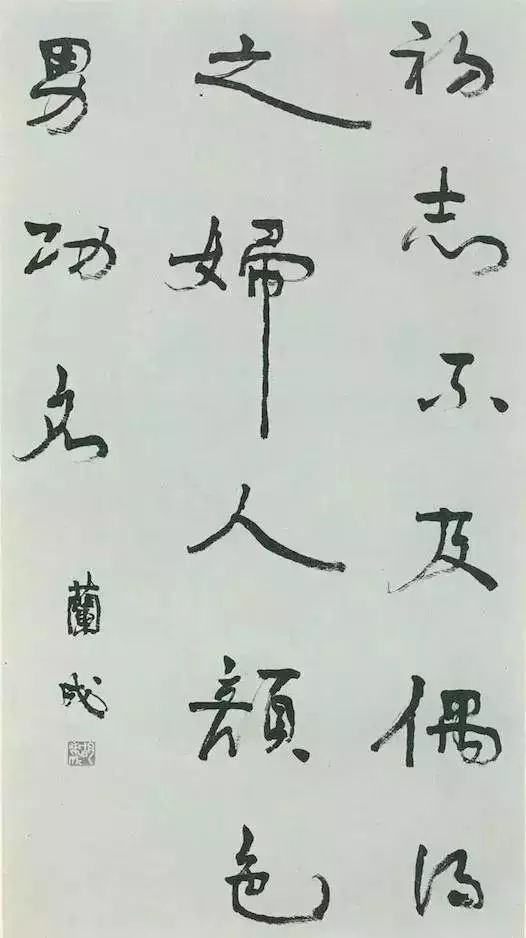 初志不及偶得
之婦人顏色
男功名
蘭成